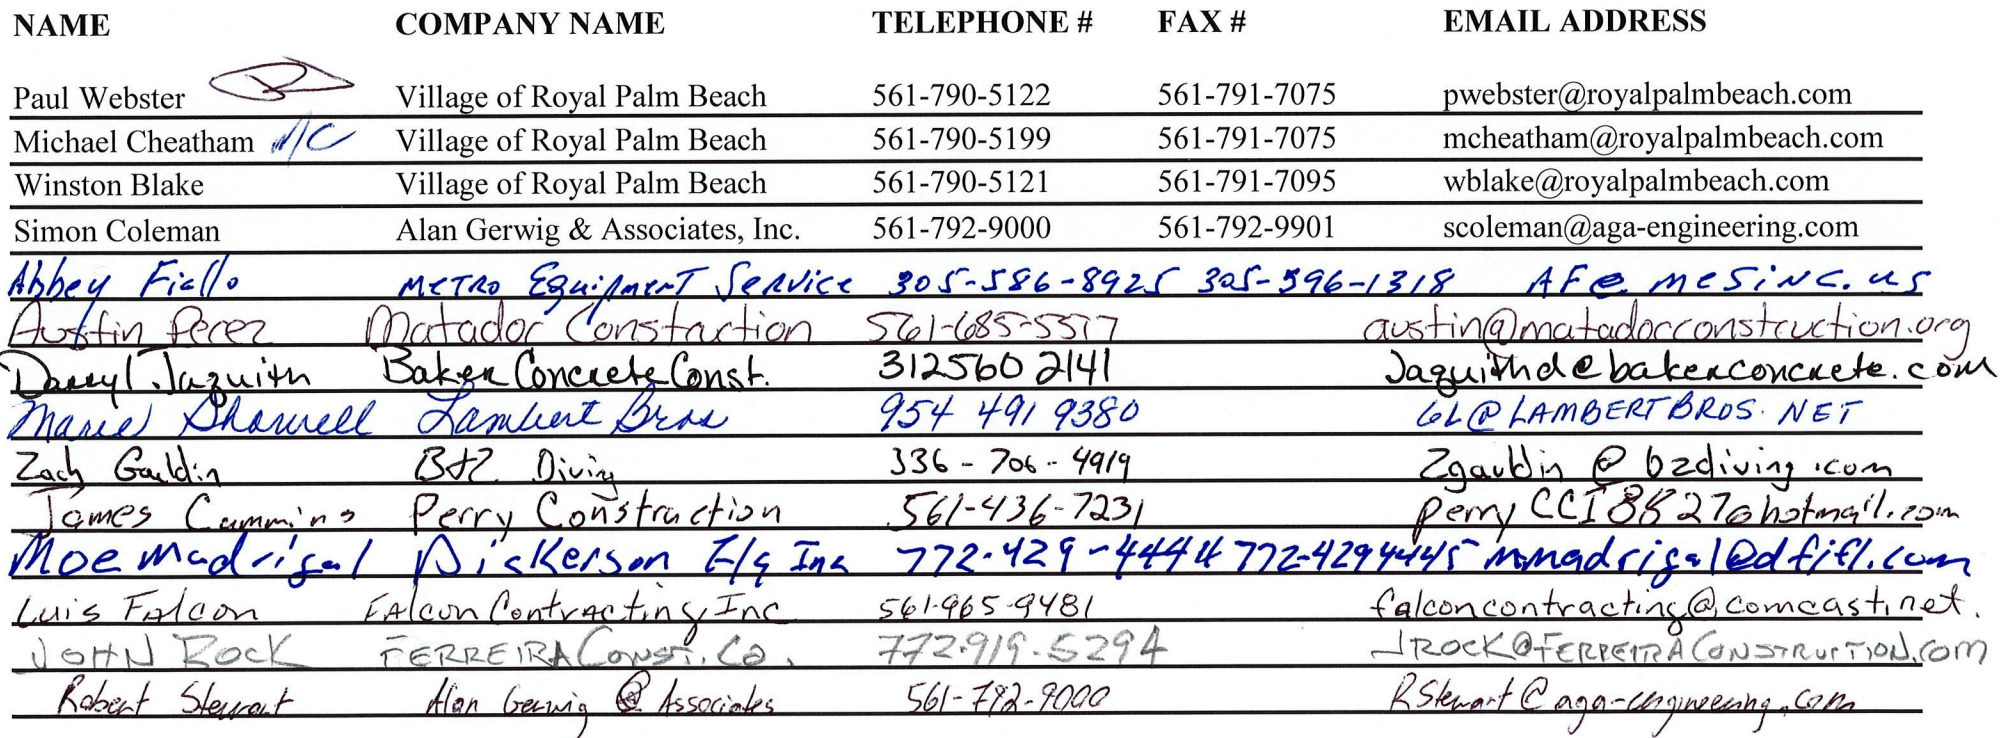 NAME COMPANY NAME TELEPHONE # FAX # EMAIL ADDRESS
Paul Webster Village of Royal Palm Beach 561-790-5122 561-791-7075 pwebster@royalpalmbeach.com
Michael Cheatham M/C Village of Royal Palm Beach 561-790-5199 561-791-7075 mcheatham@royalpalmbeach.com
Winston Blake Village of Royal Palm Beach 561-790-5121 561-791-7095 wblake@royalpalmbeach.com
Simon Coleman Alan Gerwig & Associates, Inc. 561-792-9000 561-792-9901 scoleman@aga-engineering.com
Abbey Fiallo METRO Equipment Service 305-586-8925 305-596-1318 AF@mesinc.us
Austin Perez Matador Construction 561-685-5517 austin@matadorconstruction.org
Darryl Jaquith Baker Concrete Const. 312 560 2141 Jaquithd@bakerconcrete.com
Lambert Bros 954 491 9380 GL@LAMBERTBROS.NET
Zach Gauldin B&Z Diving 336-706-4919 Zgauldin@bzdiving.com
James Cummins Perry Construction 561-436-7231 PerryCCI8827@hotmail.com
Moe Madrigal Dickerson Inc 772-429-4444 772-4294445 mmadrigal@dfifl.com
Luis Falcon FAlcon Contracting Inc 561-965-9481 falconcontracting@comcast.net.
JOHN ROCK FERREIRA CONST. CO. 772-919-5294 JROCK@FERREIRACONSTRUCTION.COM
Robert Stewart Alan Gerwig @ Associates 561-792-9000 RStewart@aga-engineering.com